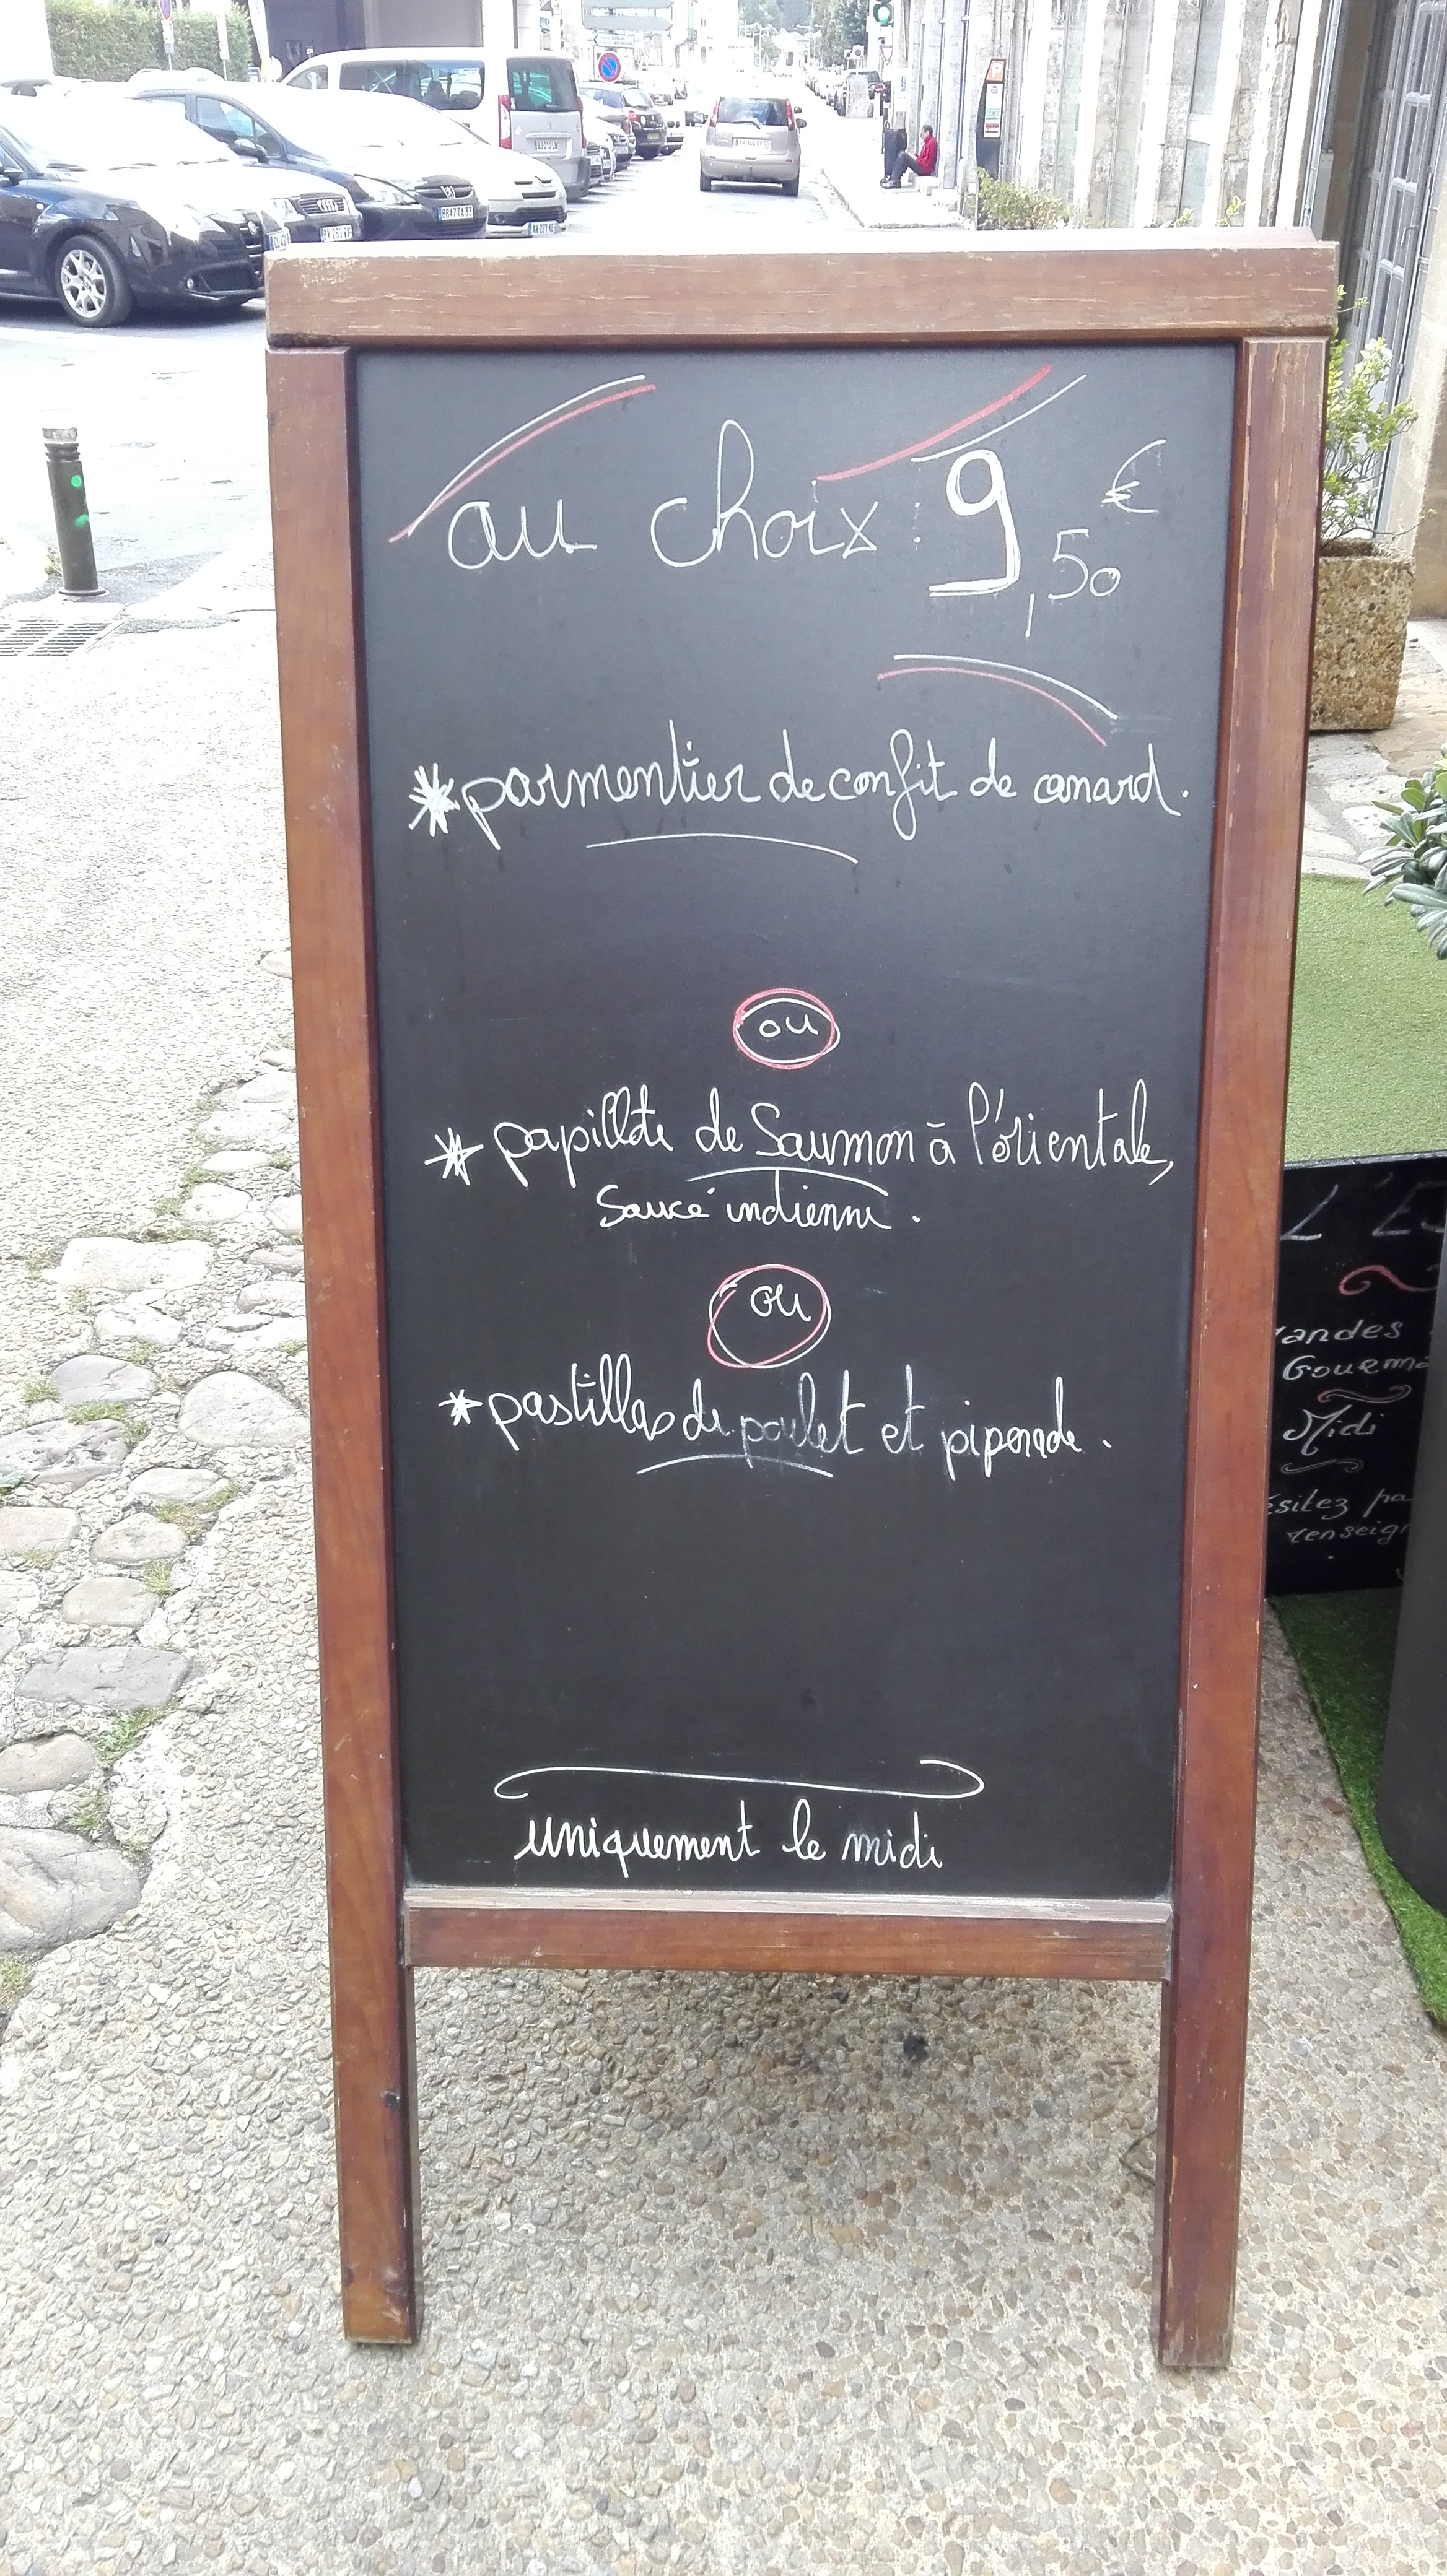 au choix : 9,50 €
* parmentier de confit de canard.
ou
* papillote de Saumon à l'orientale,
Sauce indienne.
ou
* pastillas de poulet et piperade.
uniquement le midi
L'E
andes
Gourma
Midi
ésitez pa
renseign